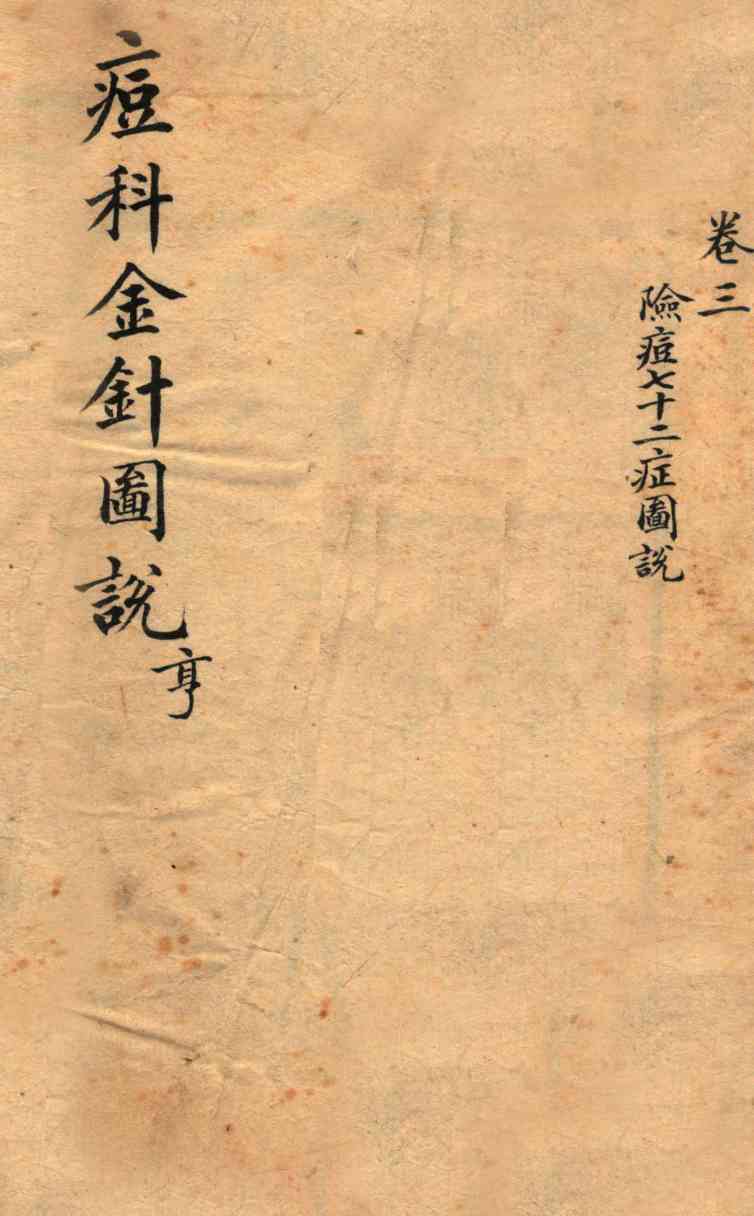 卷三
險痘七十二症圖說
痘科金針圖說
亨